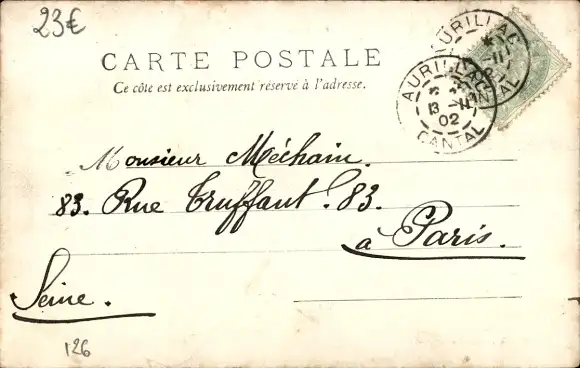 23€
CARTE POSTALE
Ce côté est exclusivement réservé à l'adresse.
AURILLAC
CANTAL
AURILLAC
13
02
CANTAL
Monsieur Méchain.
83. Rue Truffaut. 83.
à Paris.
Seine.
126